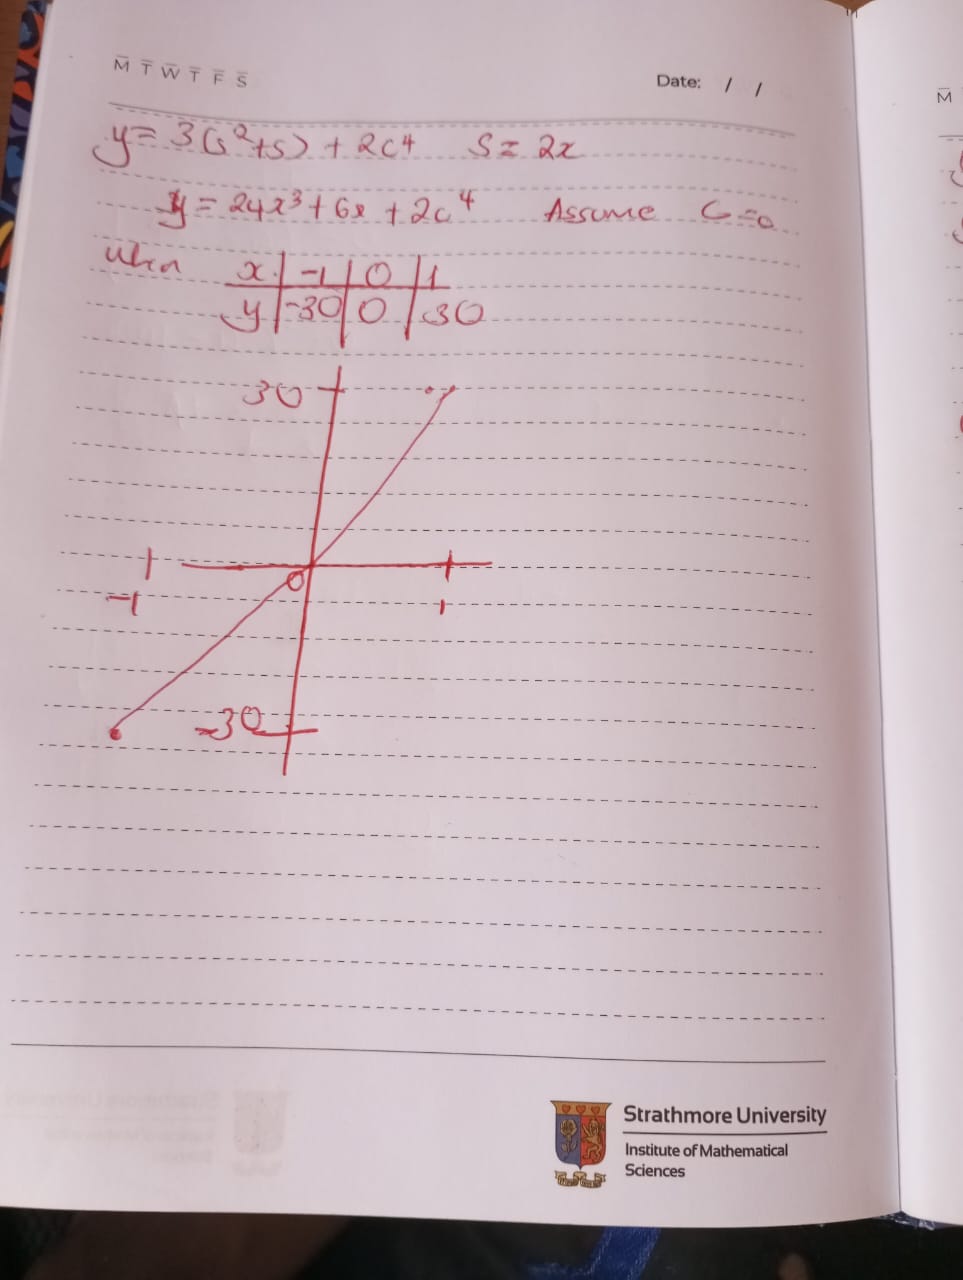 M T W T F S
Date: / /
y = 3(s²+s) + 2c⁴ S = 2x
y = 24x³ + 6x + 2c⁴ Assume C=0
When x -1 0 1
y -30 0 30
30
0
-1 1
-30
Strathmore University
Institute of Mathematical
Sciences
M